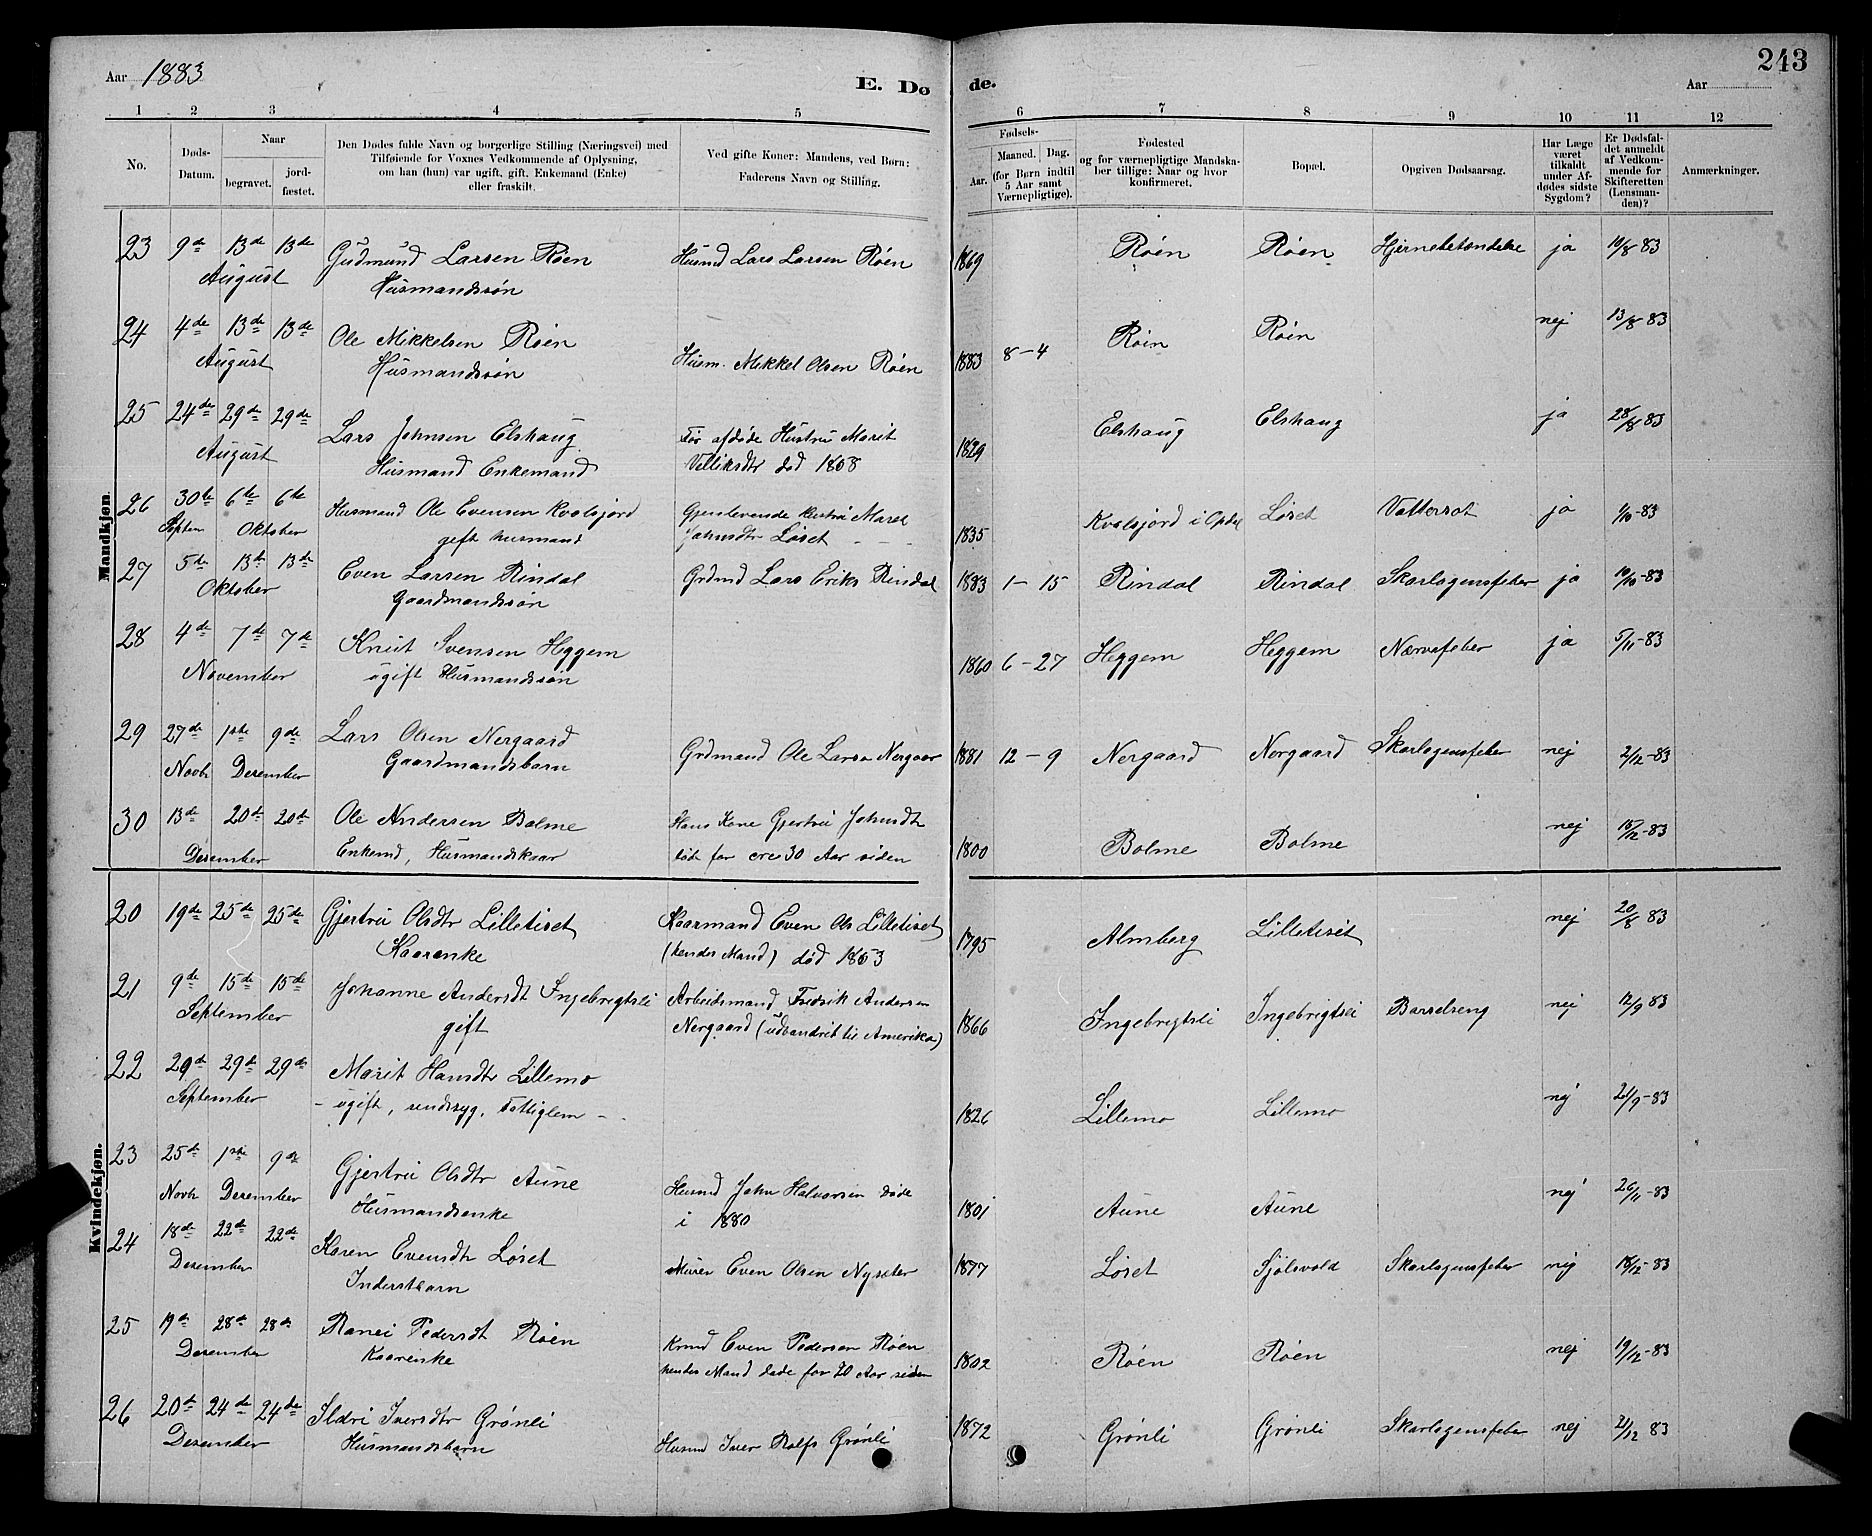 Aar 1883
E. Døde.
Aar
243
1 2 3 4 5 6 7 8 9 10 11 12
No.
Døds-Datum.
Naar
begravet.
jord-fæstet.
Den Dødes fulde Navn og borgerlige Stilling (Næringsvei) med
Tilføiende for Voxnes Vedkommende af Oplysning,
om han (hun) var ugift, gift, Enkemand (Enke)
eller fraskilt.
Ved gifte Koner: Mandens, ved Børn:
Faderens Navn og Stilling.
Fødsels-
Aar.
Maaned. Dag.
(for Børn indtil
5 Aar samt
Værnepligtige).
Fødested
og for værnepligtige Mandska-
ber tillige: Naar og hvor
konfirmeret.
Bopæl.
Opgiven Dødsaarsag.
Har Læge
været
tilkaldt
under Af-
dødes sidste
Sygdom?
Er Dødsfal-
det anmeldt
af Vedkom-
mende for
Skifteretten
(Lensman-
den)?
Anmærkninger.
Mandkjøn.
23 9de 13de 13de Gudmund Larsen Røen Husmd Lars Larsen Røen 1869 Røen Røen Hjernebetændelse ja 10/8 83
August Husmandssøn
24 4de 13de 13de Ole Mikkelsen Røen Husm. Mikkel Olsen Røen 1883 8-4 Røen Røen nej 13/8 83
August Husmandssøn
25 24de 29de 29de Lars Johnsen Elshaug Før afdøde Hustru Marit 1829 Elshaug Elshaug ja 28/8 83
August Husmand Enkemand død 1868
26 30te 6te 6te Husmand Ole Evensen Kvalsjord Gjenlevende Hustru Maret 1835 Kvalsjord i Opdal Løset Vattersot ja 1/10-83
Septem Oktober gift husmand Johnsdtr Løset
27 5te 13de 13de Even Larsen Rindal Grdmd Lars Eriks Rindal 1883 1-15 Rindal Rindal Skarlagensfeber ja 10/10-83
Oktober Gaardmandssøn
28 4de 7de 7de Knut Svensen Heggem 1860 6-27 Heggem Heggem Nervefeber ja 5/11-83
November ugift Husmandssøn
29 27de 1ste 9de Lars Olsen Nergaard Grdmand Ole Larsen Nergaar 1881 12-9 Nergaard Nergaard Skarlagensfeber nej 2/12-83
Novb Desember Gaardmandsbarn
30 13de 20de 20de Ole Andersen Bolme Hans Kone Gjertru Johnsdt 1800 Bolme Bolme nej 15/12-83
Desember Enkemd, Husmandskaar døde for cre 30 Aar siden
Kvindekjøn.
20 19de 25de 25de Gjertru Olsdtr Lilletiset Kaarmand Even Ols Lilletiset 1795 Almberg Lilletiset nej 20/8 83
Kaarenke (hendes Mand) død 1863
21 9de 15de 15de Johanne Andersdt Ingebrigtsli Arbeidsmand Fredrik Andersen 1866 Ingebrigtsli Ingebrigtsli Barselseng nej 12/9 83
September gift Nergaard (udvandret til Amerika)
22 20de 29de 29de Marit Hansdtr Lillemo 1826 Lillemo Lillemo nej 21/9-83
September - ugift, sindssyg, Fattiglem -
23 25de 1ste 9de Gjertru Olsdtr Aune Husmd John Halvorsen døde 1801 Aune Aune nej 26/11-83
Novb Desember Husmandsenke i 1880
24 18de 22de 22de Karen Evensdtr Løset Murer Even Olsen Nyseter 1877 Løset Sjølsvold Skarlagensfeber nej 18/12-83
Desember Inderstbarn
25 19de 28de 28de Ranei Pedersdt Røen Krmd Even Pedersen Røen 1802 Røen Røen nej 19/12-83
Desember Kaarenke hendes Mand døde for 20 Aar siden
26 20de 24de 24de Ildri Iversdtr Grønli Husmd Iver Rolfs Grønli 1872 Grønli Grønli Skarlagensfeber nej 21/12 83
Desember Husmandsbarn